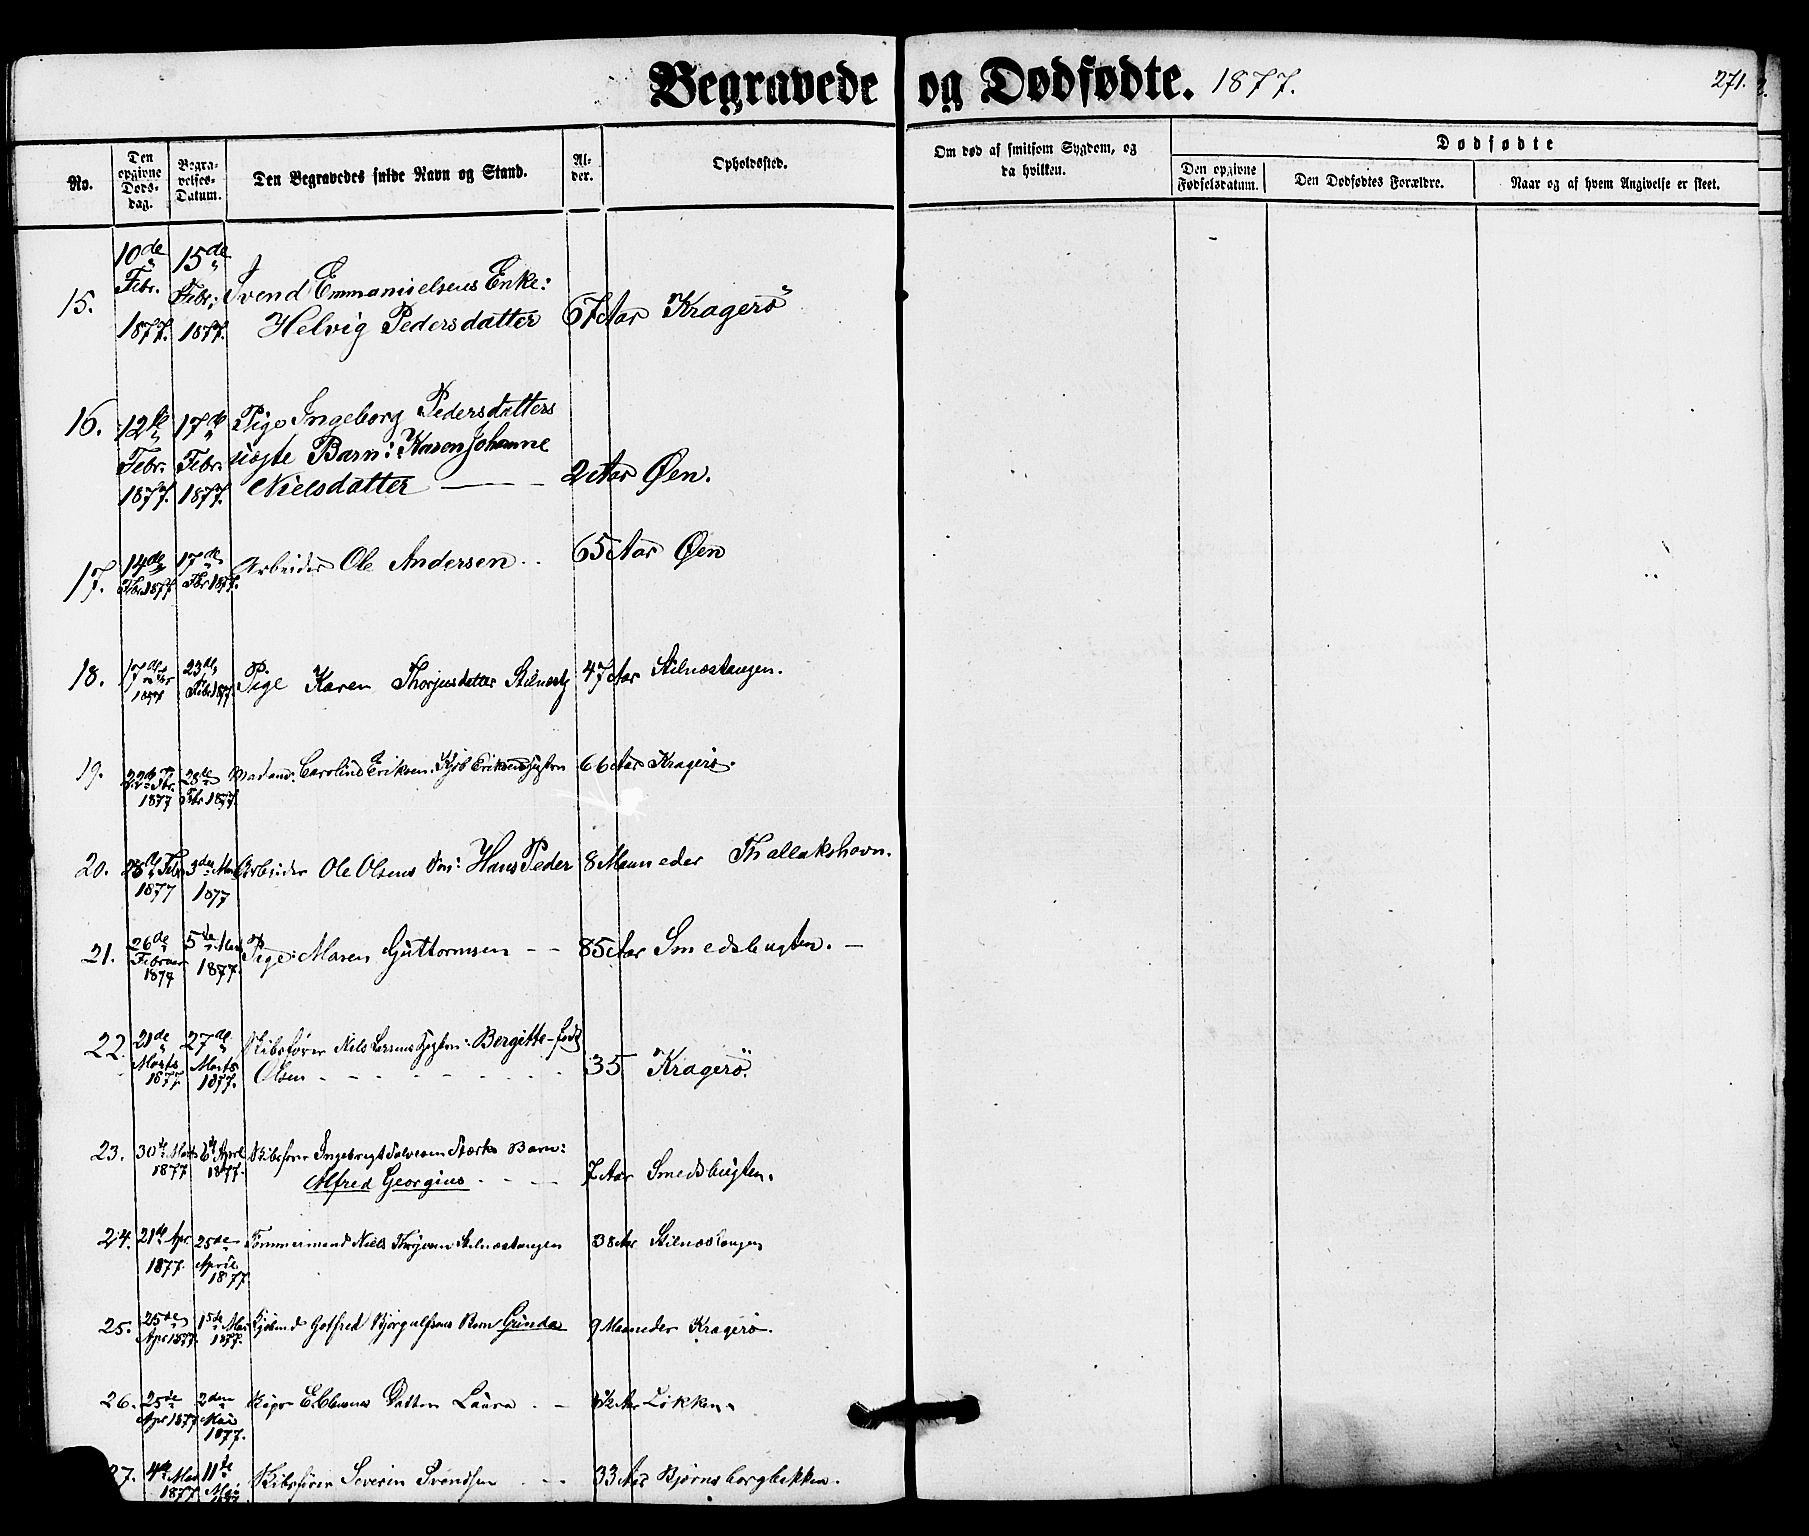 Begravede og Dødfødte. 1877. 271.
No.
Den opgivne Døds-dag.
Begra-velses-Datum.
Den Begravedes fulde Navn og Stand.
Al-der.
Opholdssted.
Om død af smitsom Sygdom, og da hvilken.
Dødfødte
Den opgivne Fødselsdatum.
Den Dødfødtes Forældre.
Naar og af hvem Angivelse er skeet.
15. 10de Febr. 1877. 15de Febr. 1877. Svend Emmanuelsens Enke:
Helvig Pedersdatter 67 Aar Kragerö
16. 12te Febr. 1877. 17de Febr. 1877. Pige Ingeborg Pedersdatters
uægte Barn: Karen Johanne
Nielsdatter 2 Aar Øen.
17. 14de Fbr. 1877 17de Fbr 1877. Arbeider Ole Andersen 65 Aar Øen
18. 17de Fbr 1877 23de Febr 1877. Pige Karen Thorjusdatter 47 Aar Stilnæstangen.
19. 22de Fbr. 1877 28de Fbr 1877. Madam: Caroline Eriksen. 66 Aar Kragerö.
20. Febr 1877 3die 1877 Arbeider Ole Olsens Søn: Hans Peder 8 Maaneder Thallakshavn.
21. 26de Februar 1877 5te 1877. Pige: Maren Guttormsen 85 Aar Smedsbugten.
22. 21de Marts 1877. 27de Marts 1877. Skibsfører Nils Bergitte født
Olsen 35 Kragerö.
23. 30te 1877 6te April 1877. Skibsfører Barn:
Alfred Georgius 7 Aar Smedsbugten.
24. 21de Apr 1877. 25de April 1877. Tømmermand Niels Stilnæstangen 38 Aar Stilnæstangen
25. 25de Apr 1877. 1ste Mai 1877. Gotfred Barn Gunda 9 Maaneder Kragerö.
26. 25de Apr 1877 2den Mai 1877. Datter Laura Løkken.
27. 4de Mai 1877 11te Mai Skibsfører Severin Svendsen 33 Aar Bjørnsborgbakken.